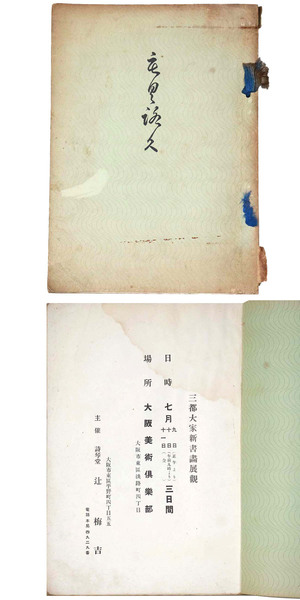 もくろく
三都大家新書畫展觀
日時 七月 九日 十日 十一日 三日間
場所 大阪美術倶樂部
大阪市東區淡路町四丁目
主催 詩琴堂 辻梅吉
大阪市東區平野町四丁目